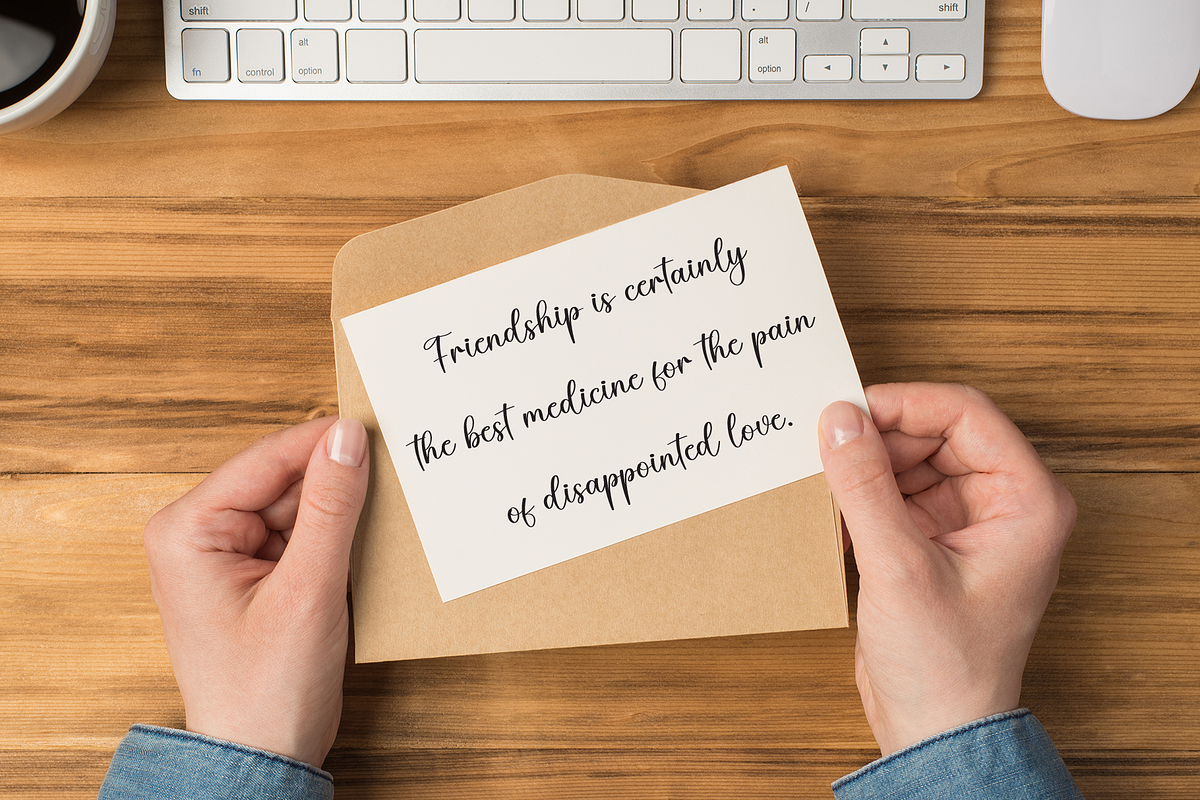 shift , . / shift
fn control alt option alt option ▲
◄ ▼ ►
Friendship is certainly
the best medicine for the pain
of disappointed love.